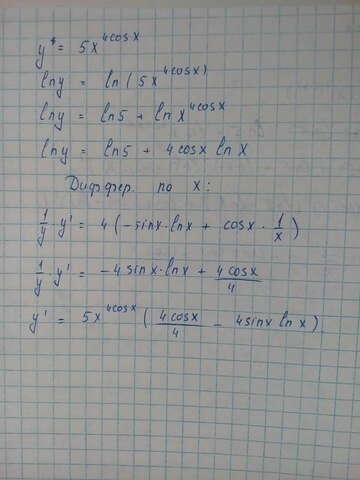 y' = 5x^{4cosx}
lny = ln(5x^{4cosx})
lny = ln5 + lnx^{4cosx}
lny = ln5 + 4cosx lnx
Диффер. по x:
1/y · y' = 4(-sinx·lnx + cosx · 1/x)
1/y · y' = -4sinx·lnx + 4cosx/4
y' = 5x^{4cosx}(4cosx/4 - 4sinx lnx)